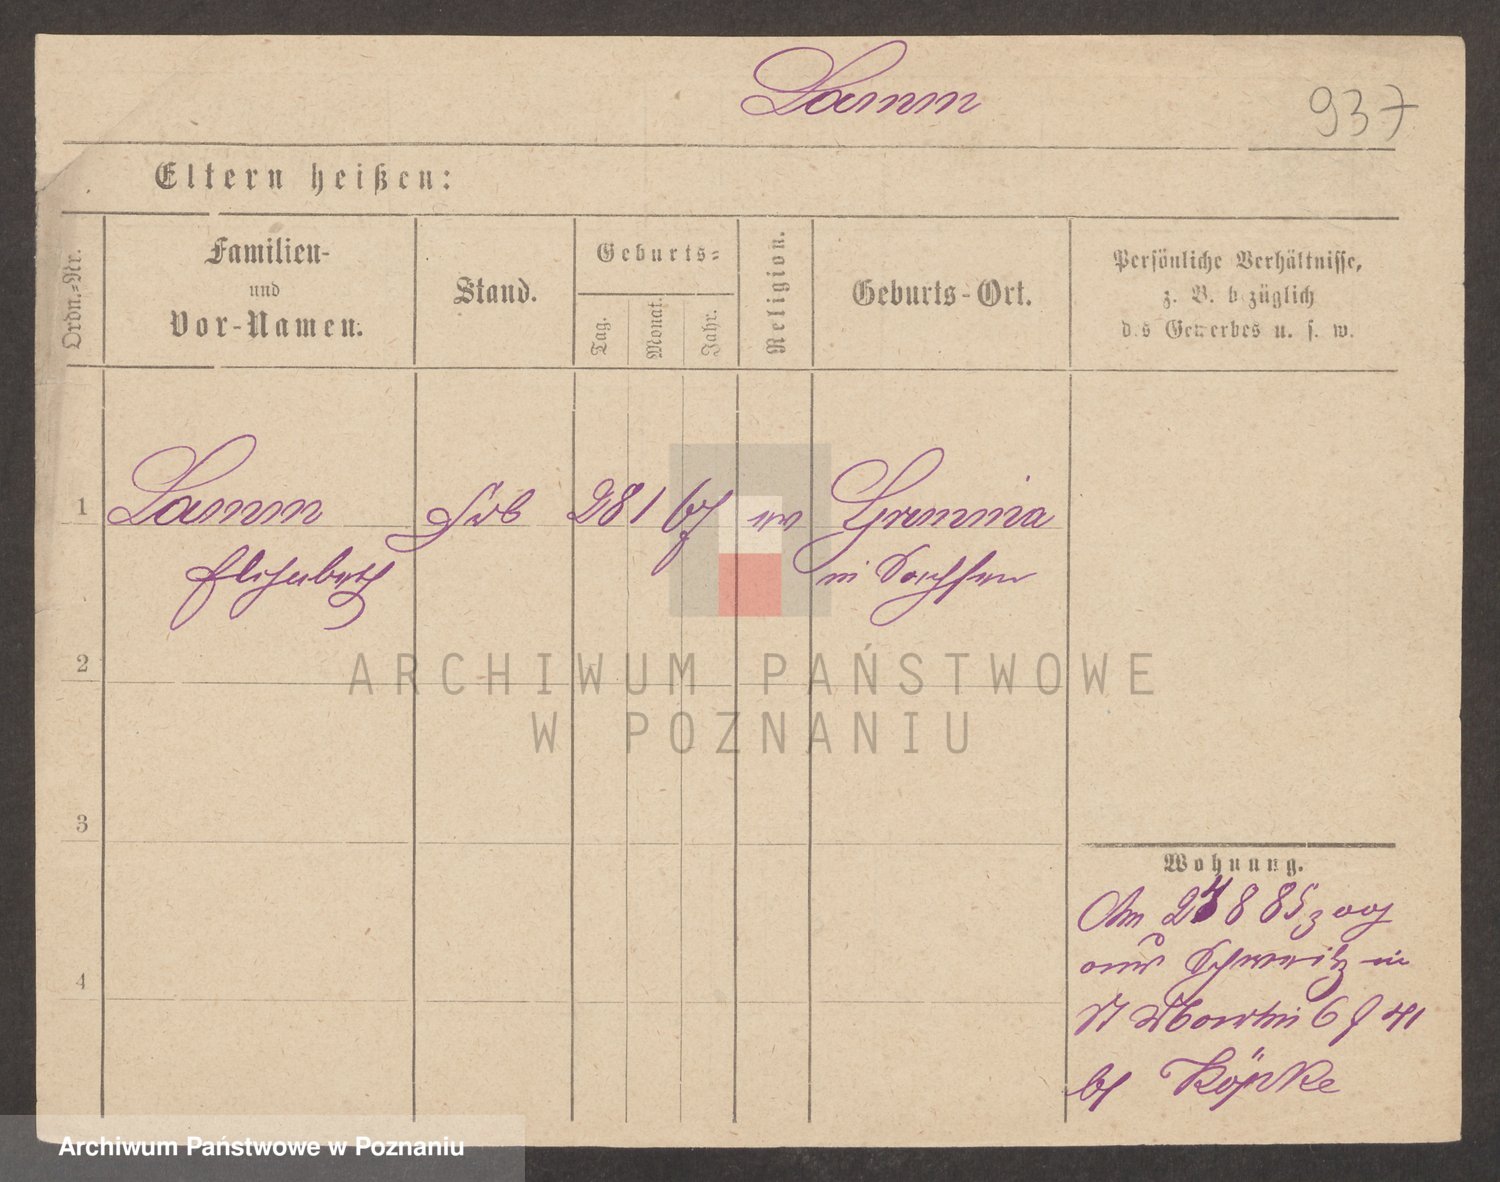 Lamm
937
Eltern heißen:
Ordn.-Nr.
Familien-
und
Vor-Namen.
Stand.
Geburts-
Tag.
Monat.
Jahr.
Religion.
Geburts-Ort.
Persönliche Verhältnisse,
z. B. bezüglich
des Gewerbes u. s. w.
1
Lamm
28 1 67
ev
Grimma
Elisabeth
in Sachsen
2
ARCHIWUM PAŃSTWOWE
W POZNANIU
3
Wohnung.
Am 24 8 85 zog
aus Schweitz in
4
St Martin 6 41
bf Köpke
Archiwum Państwowe w Poznaniu